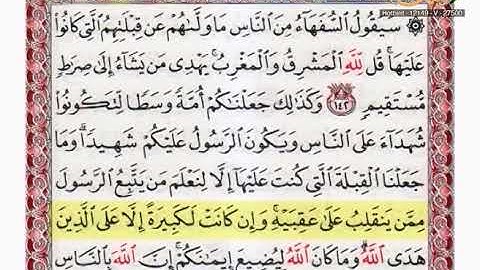 Hotbird - 12149 - V - 27500
۞ سَيَقُولُ ٱلسُّفَهَآءُ مِنَ ٱلنَّاسِ مَا وَلَّىٰهُمْ عَن قِبْلَتِهِمُ ٱلَّتِى كَانُوا۟
عَلَيْهَا ۚ قُل لِّلَّهِ ٱلْمَشْرِقُ وَٱلْمَغْرِبُ ۚ يَهْدِى مَن يَشَآءُ إِلَىٰ صِرَٰطٍ
مُّسْتَقِيمٍ ١٤٢ وَكَذَٰلِكَ جَعَلْنَٰكُمْ أُمَّةً وَسَطًا لِّتَكُونُوا۟
شُهَدَآءَ عَلَى ٱلنَّاسِ وَيَكُونَ ٱلرَّسُولُ عَلَيْكُمْ شَهِيدًا ۗ وَمَا
جَعَلْنَا ٱلْقِبْلَةَ ٱلَّتِى كُنتَ عَلَيْهَآ إِلَّا لِنَعْلَمَ مَن يَتَّبِعُ ٱلرَّسُولَ
مِمَّن يَنقَلِبُ عَلَىٰ عَقِبَيْهِ ۚ وَإِن كَانَتْ لَكَبِيرَةً إِلَّا عَلَى ٱلَّذِينَ
هَدَى ٱللَّهُ ۗ وَمَا كَانَ ٱللَّهُ لِيُضِيعَ إِيمَٰنَكُمْ ۚ إِنَّ ٱللَّهَ بِٱلنَّاسِ